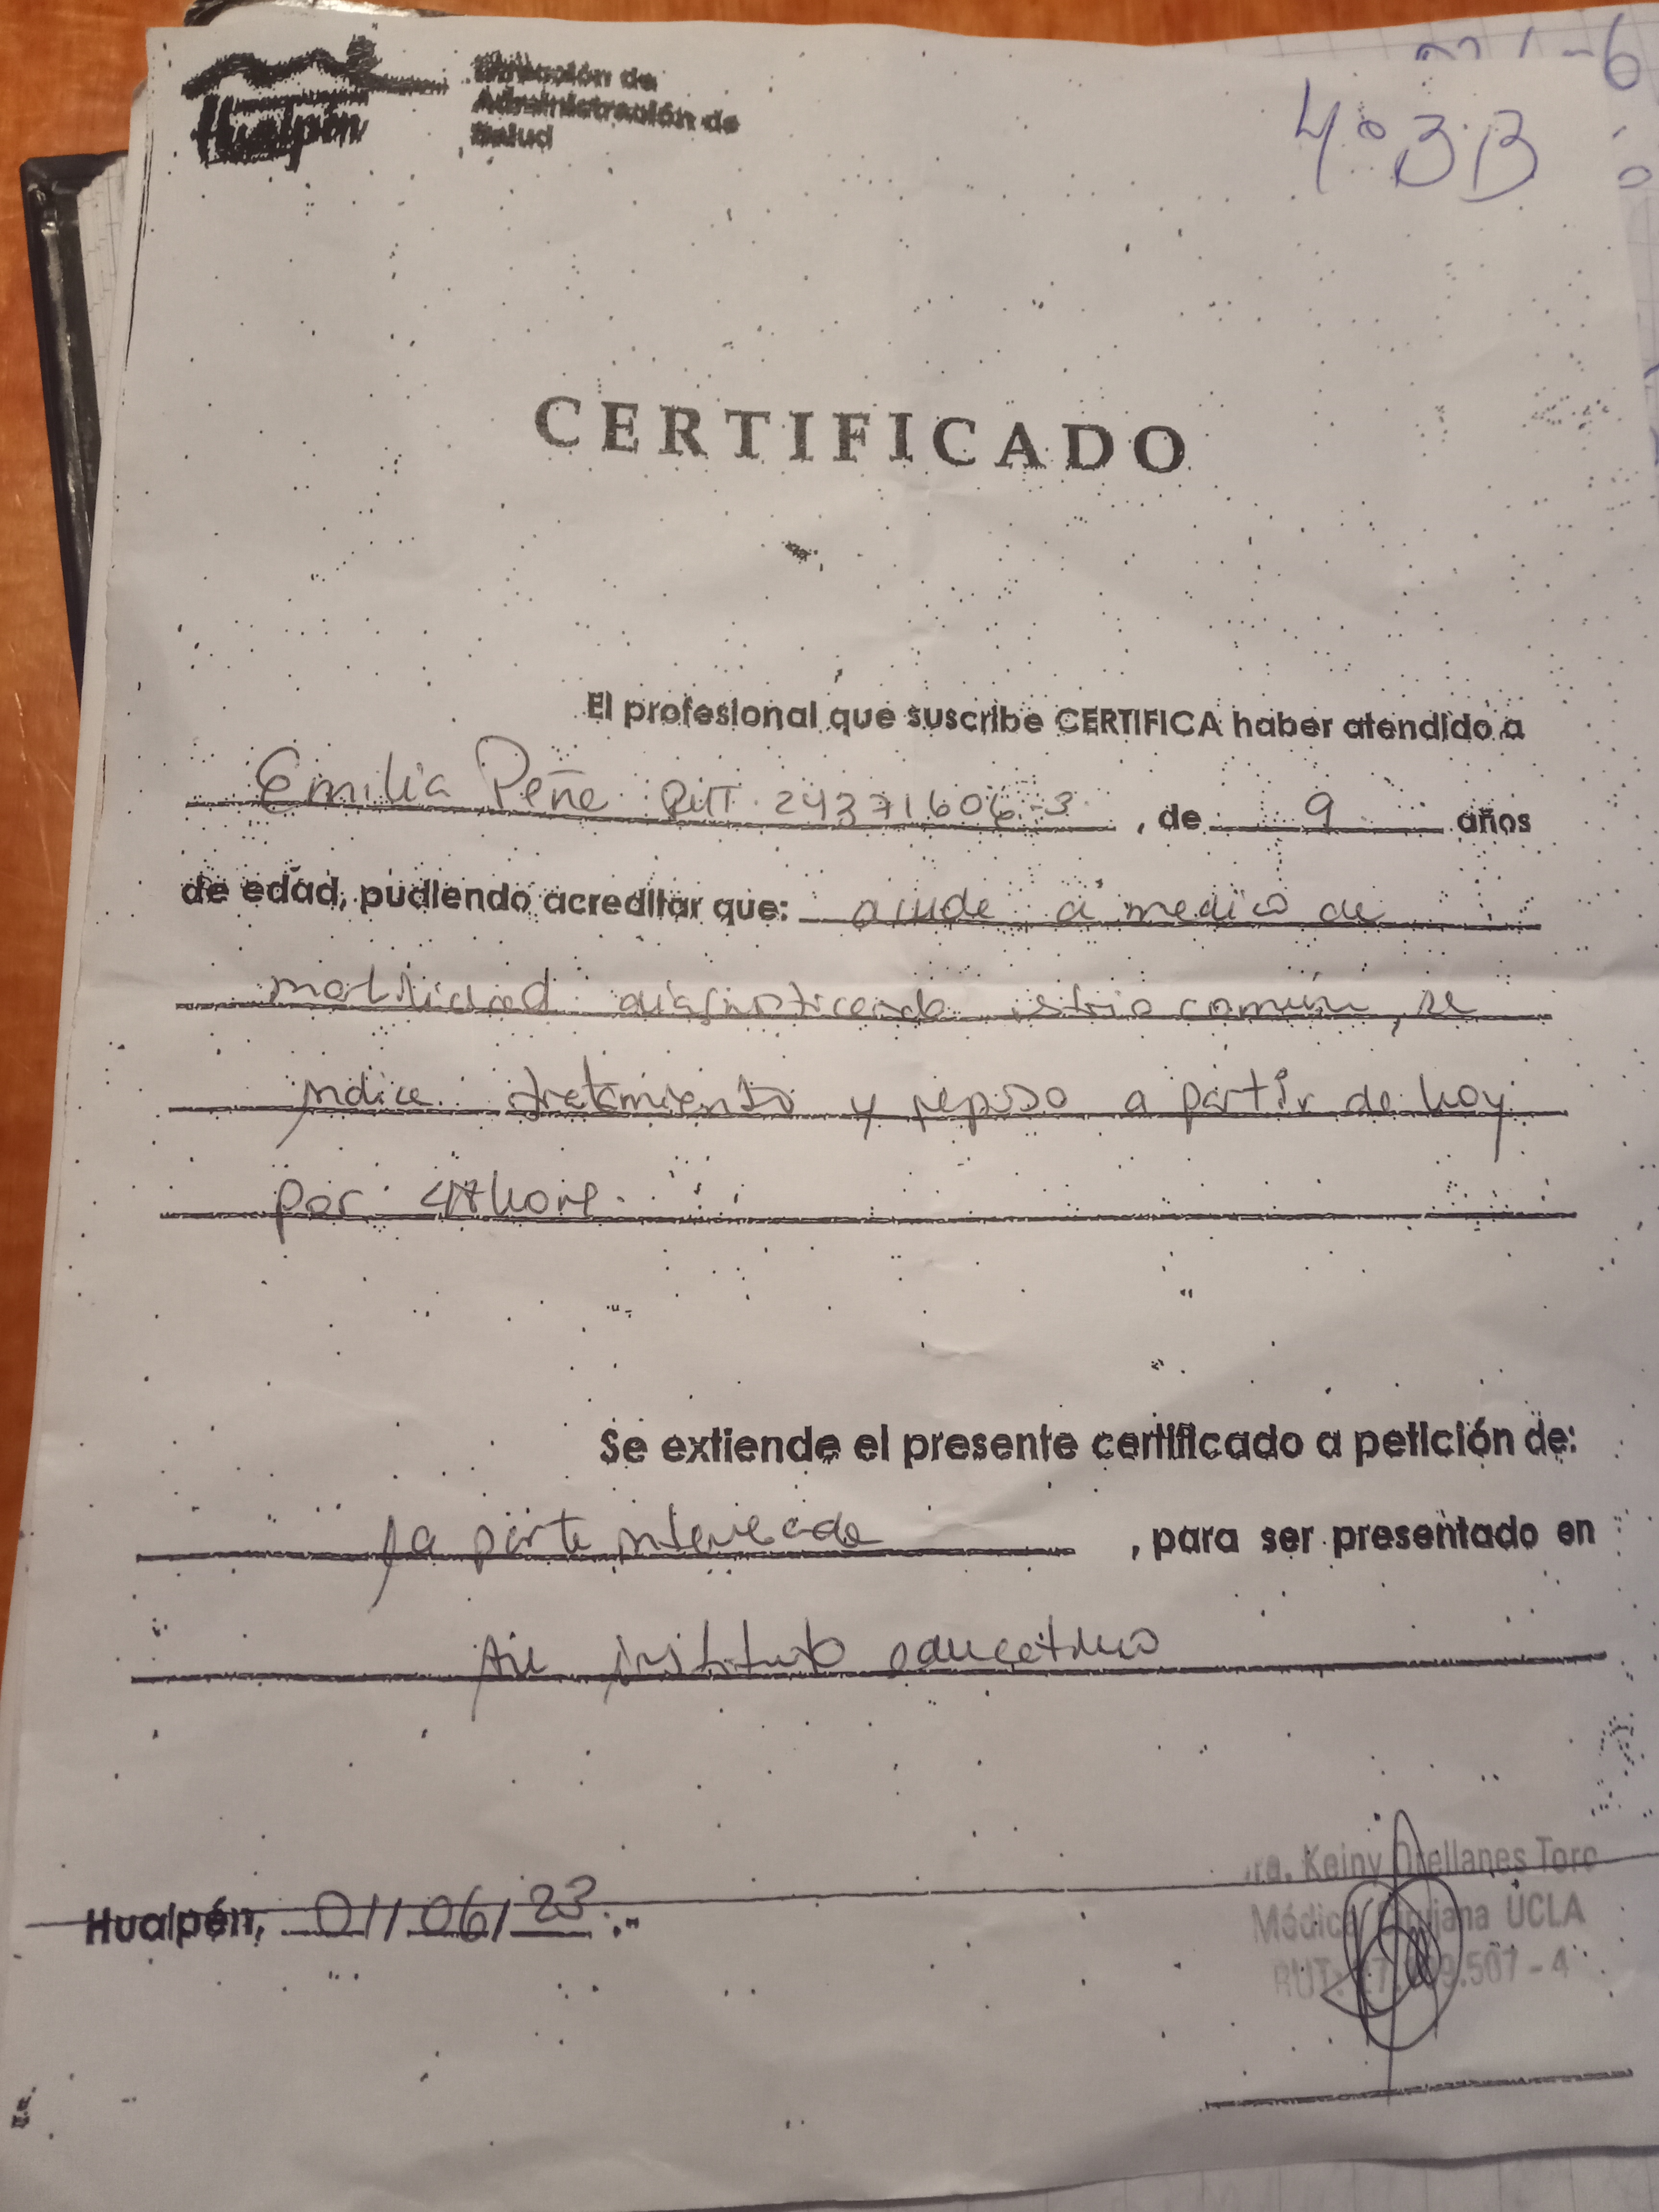 Hualpén
Dirección de
Administración de
Salud
4°3B
CERTIFICADO
El profesional que suscribe CERTIFICA haber atendido a
Emilia Peña RUT 24371606-3, de 9 años
de edad, pudiendo acreditar que: acude a medico de
morbilidad diagnosticando común, se
indica tratamiento y reposo a partir de hoy
por hora.
Se extiende el presente certificado a petición de:
la parte interesada, para ser presentado en
instituto educativo
Hualpén, 01/06/23.-
Dra. Keiny Orellanes Toro
Médico Cirujana UCLA
RUT: .507-4